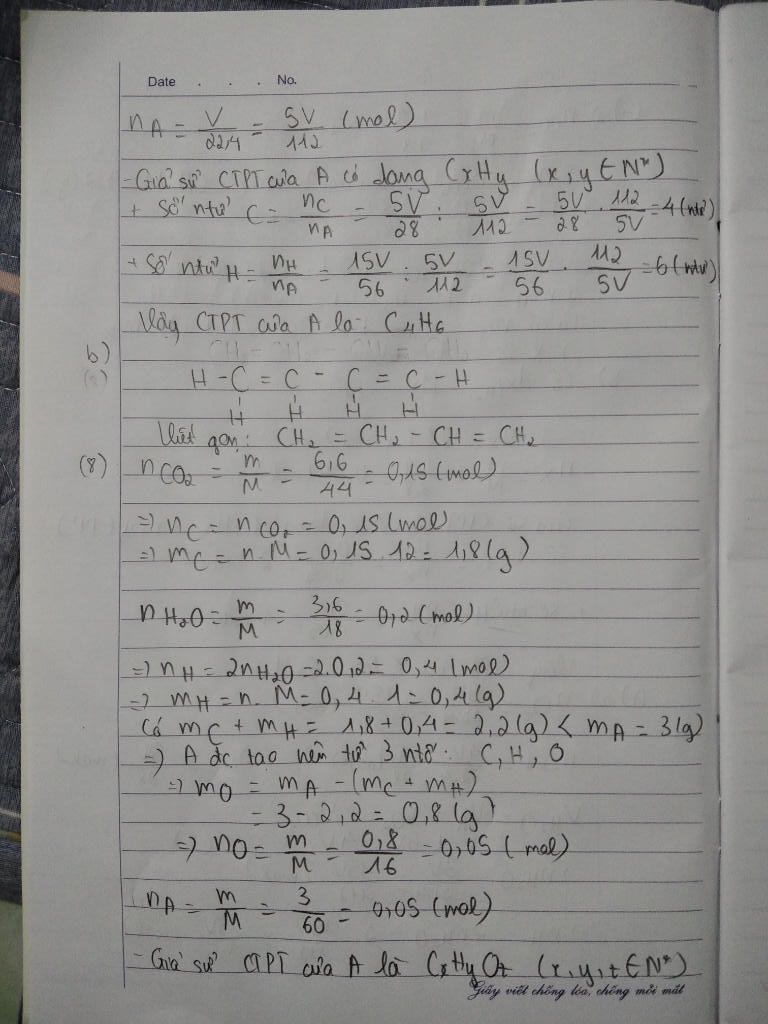 Date . . . No.
n_A = V/22,4 = 5V/112 (mol)
- Giả sử CTPT của A có dạng CxHy (x, y ∈ N*)
+ Số ntử C = n_C/n_A = 5V/28 : 5V/112 = 5V/28 . 112/5V = 4 (ntử)
+ Số ntử H = n_H/n_A = 15V/56 : 5V/112 = 15V/56 . 112/5V = 6 (ntử)
Vậy CTPT của A là: C4H6
b)
H - C = C - C = C - H
H H H H
Viết gọn: CH2 = CH2 - CH = CH2
(8) n_CO2 = m/M = 6,6/44 = 0,15 (mol)
=> n_C = n_CO2 = 0,15 (mol)
=> m_C = n.M = 0,15.12 = 1,8 (g)
n_H2O = m/M = 3,6/18 = 0,2 (mol)
=> n_H = 2n_H2O = 2.0,2 = 0,4 (mol)
=> m_H = n.M = 0,4.1 = 0,4 (g)
Có m_C + m_H = 1,8 + 0,4 = 2,2 (g) < m_A = 3 (g)
=> A đc tạo nên từ 3 ntố: C, H, O
=> m_O = m_A - (m_C + m_H)
= 3 - 2,2 = 0,8 (g)
=> n_O = m/M = 0,8/16 = 0,05 (mol)
n_A = m/M = 3/60 = 0,05 (mol)
- Giả sử CTPT của A là CxHyOz (x, y, z ∈ N*)
Giấy viết chống lóa, chống mỏi mắt